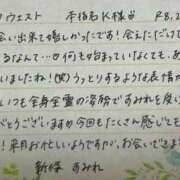 ウエスト 本指名K様 R8,2
会い出来て嬉しかったです!会えただけで
るなんて…◎何も始まっていなくても、あ
いましたね!(笑)うっとりするような表情が
いつも全身全霊の姿勢ですみれを度
がとうございます!!今回もたくさん感じても
!来月お忙しいようですが、お会いできま
新條 すみれ